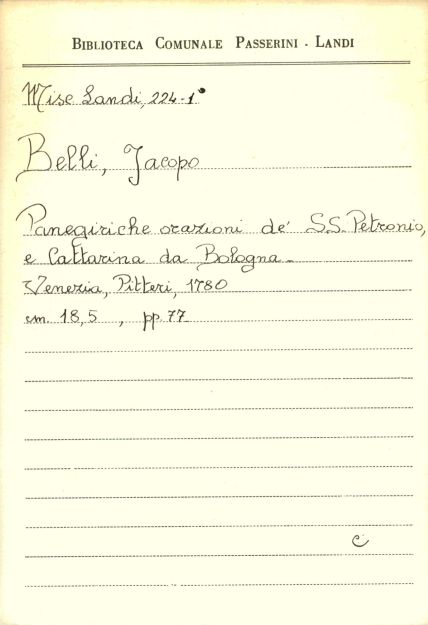 BIBLIOTECA COMUNALE PASSERINI - LANDI
Misc Landi, 224-1°
Belli, Jacopo
Panegiriche orazioni de' S.S. Petronio,
e Cattarina da Bologna -
Venezia, Pitteri, 1780
cm. 18,5 , pp. 77
C